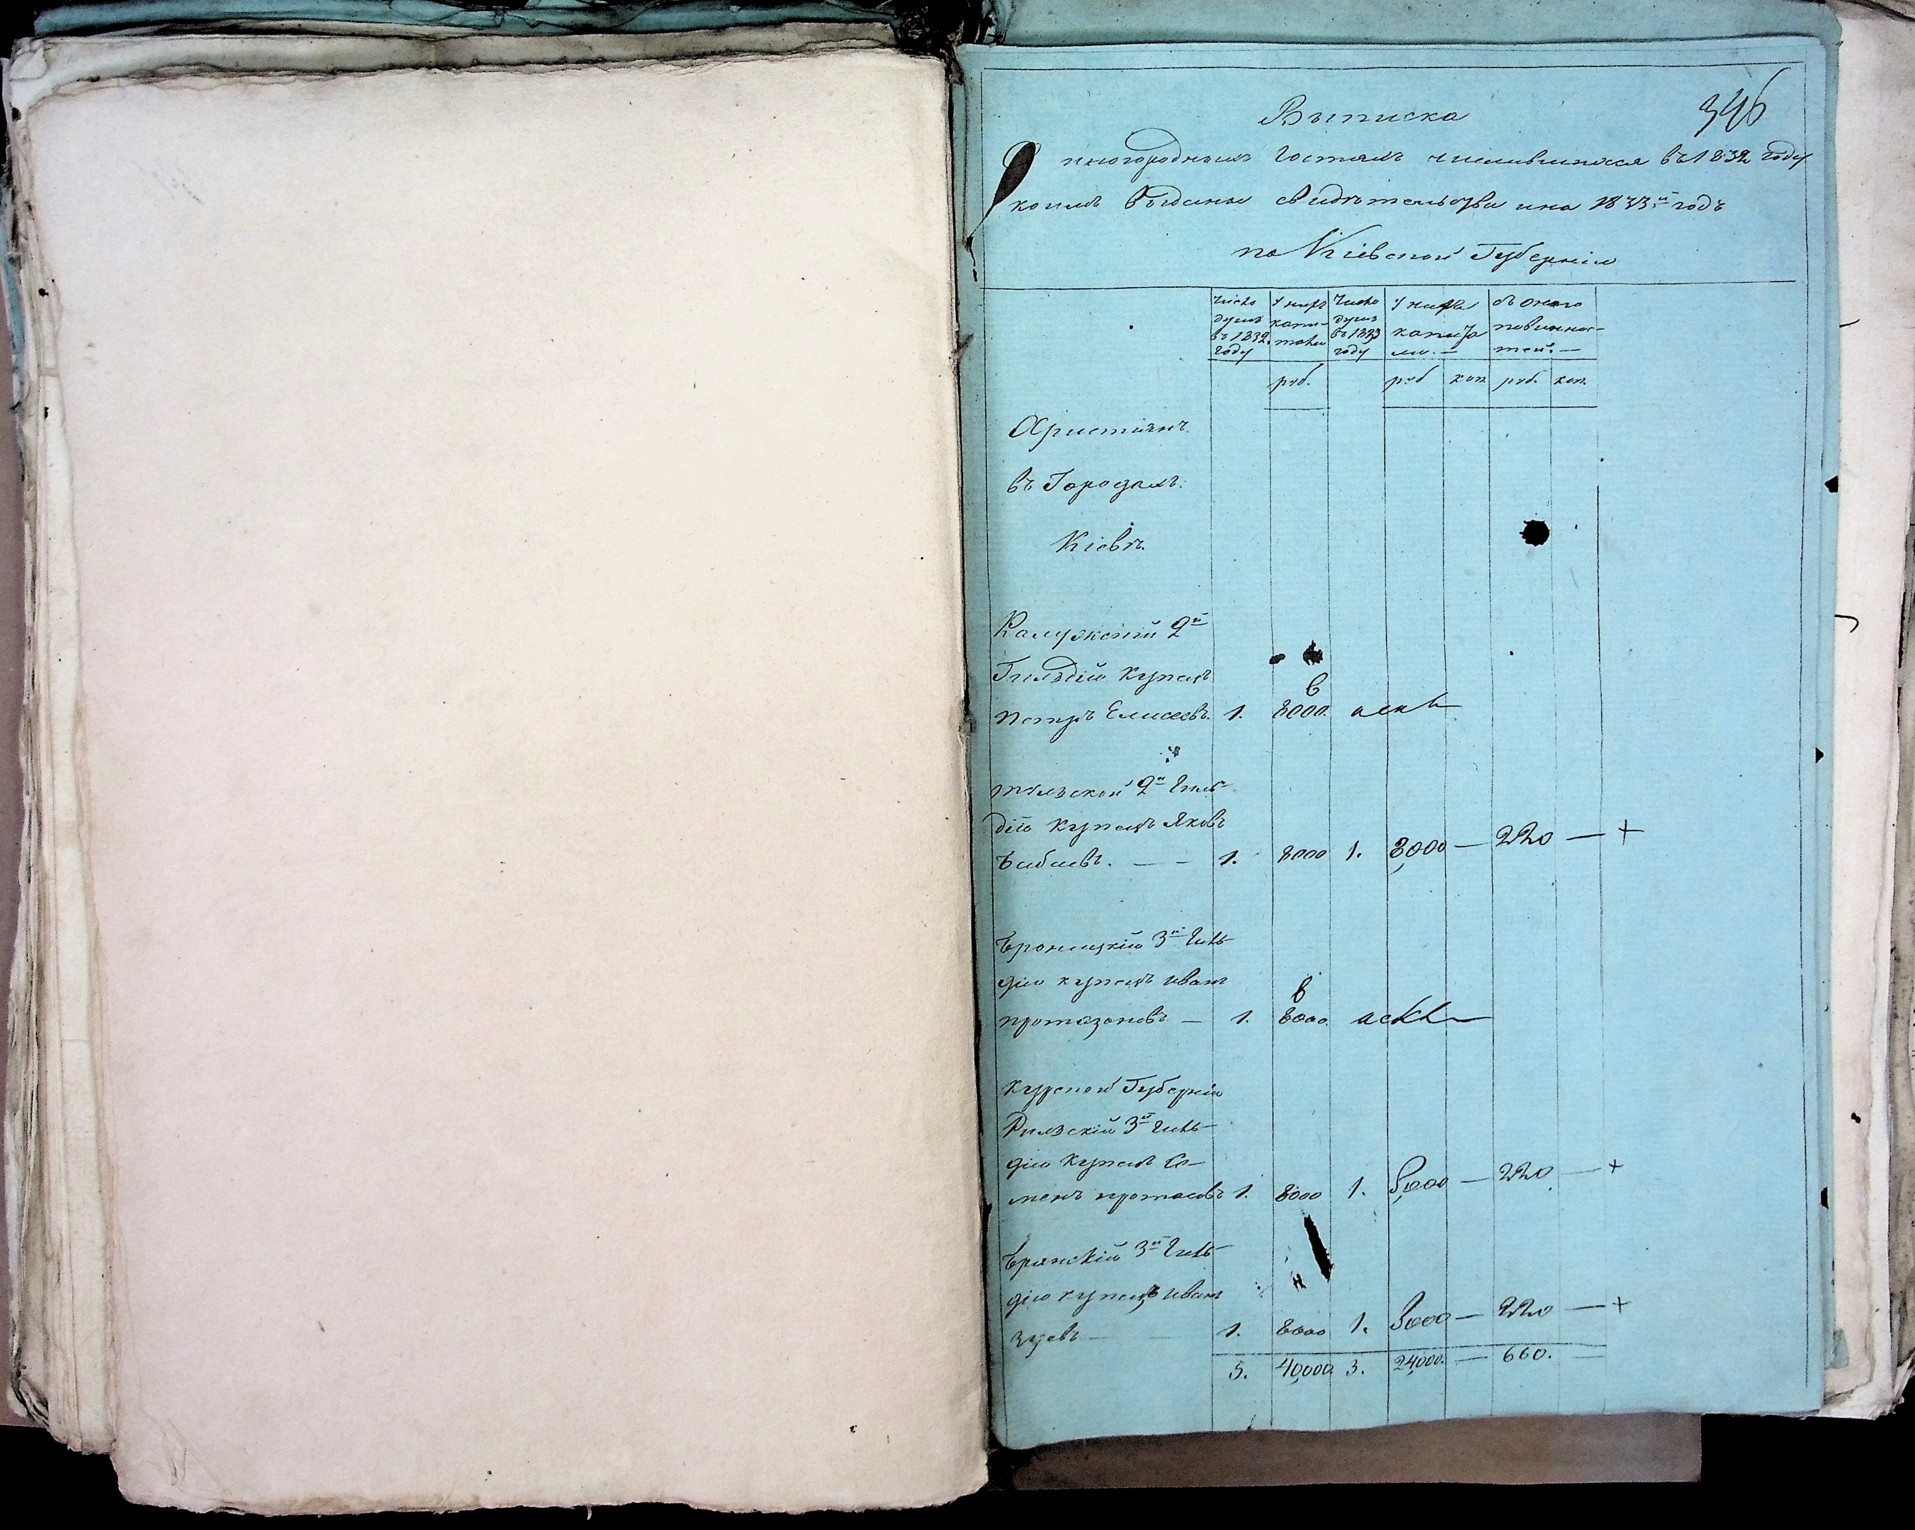 Выписка
346
О иногороднымъ Гостямъ числившимся въ 1832 году
коимъ выданы свидѣтельства и на 1833й годъ
по Кіевской Губерніи
Число душъ въ 1832 году
У нихъ капиталу
Число душъ въ 1833 году
У нихъ капиталу
съ онаго повинностей
руб. руб коп руб. коп.
Христіянъ
въ Городахъ:
Кіевѣ.
Калужскій 2й
Гильдіи купецъ в
Петръ Елисеевъ. 1. 8000.
Тульской 2й Гиль
діи купецъ Яковъ
Бабаевъ. — — 1. 8000 1. 8,000 — 220 — +
Бронницкій 3й Гиль
діи купецъ Иванъ в
Протазановъ — 1. 8000.
Курской Губерніи
Рильскій 3й Гиль
діи купецъ Се-
менъ Протасовъ 1. 8000 1. 8,000 — 220 — +
Брянскій 3й Гиль
діи купецъ Иванъ
Зуевъ — 1. 8000 1. 8000 — 220 — +
5. 40,000. 3. 24,000. — 660. —